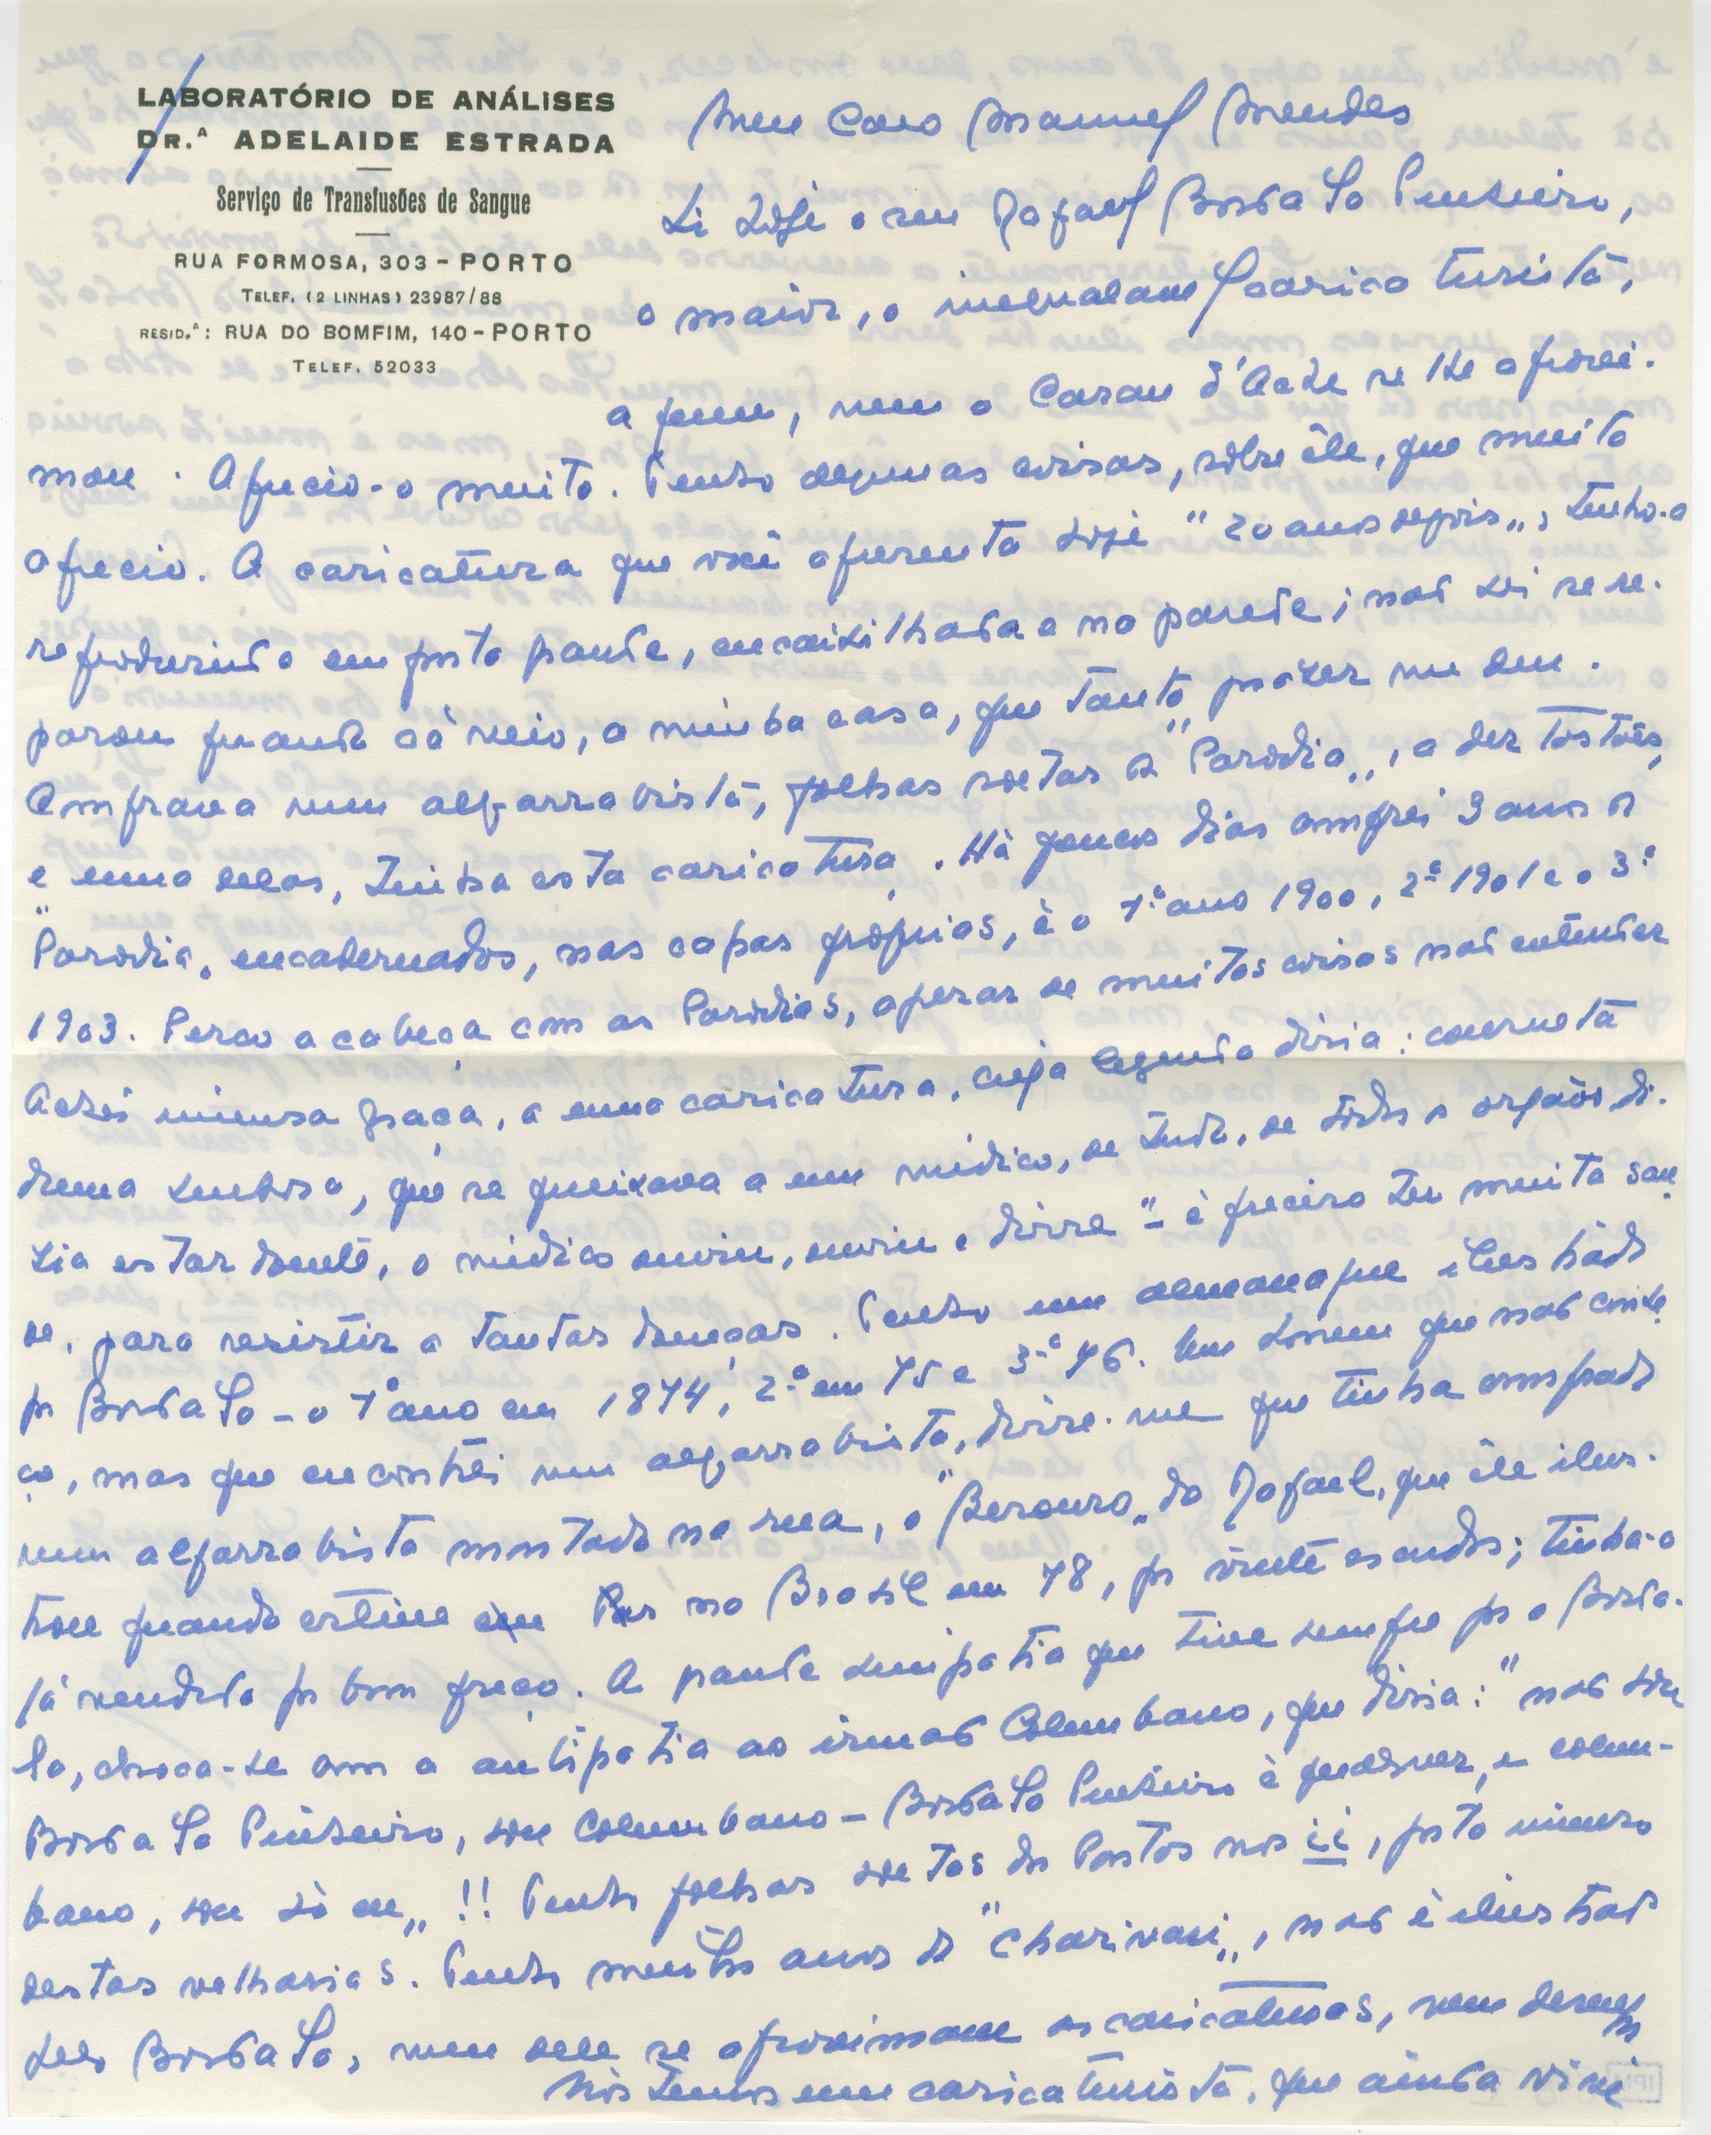 LABORATÓRIO DE ANÁLISES
DR.ª ADELAIDE ESTRADA
Serviço de Transfusões de Sangue
RUA FORMOSA, 303 - PORTO
TELEF. (2 LINHAS) 23987/88
RESID.ª: RUA DO BOMFIM, 140 - PORTO
TELEF. 52033
Meu Caro Manuel Mendes
Li hoje o seu Rafael Bordalo Pinheiro,
o maior, o inegualavel caricaturista,
a quem, nem o Caran d'Ache se lhe aproxi-
mou. Aprecio-o muito. Tenho algumas coisas, sobre êle, que muito
aprecio. A caricatura que você apresenta hoje "20 anos depois", tenho-a
reproduzida em ponto grande, encaixilhada e na parede; não sei se re-
parou quando cá veio, a minha casa, que tanto prazer me deu.
Comprava num alfarrabista, folhas soltas da "Parodia", a dez tostões,
e numa delas, tinha esta caricatura. Há poucos dias comprei 3 anos da
"Parodia" encadernados, nas capas próprias, é o 1.º ano 1900, 2.º 1901 e o 3.º
1903. Perco a cabeça com as Parodias, apesar de muitas coisas não entender
Achei imensa graça, a uma caricatura, cuja legenda dizia: consulta
duma senhora, que se queixava a um médico, de tudo, de todos os orgãos di-
zia estar doente, o médico ouviu, ouviu e disse "- é preciso ter muita sau-
de, para resistir a tantas doenças. Tenho um almanaque ilustrado
por Bordalo - o 1º ano em 1874, 2.º em 75 e 3.º 76. Um homem que não conhe-
ço, mas que encontrei num alfarrabista, disse-me que tinha comprado
num alfarrabista montado na rua, o "Besouro" do Rafael, que êle ilus-
trou quando esteve no Brasil em 78, por vinte escudos; tinha-o
já vendido por bom preço. A grande simpatia que tive sempre por o Borda-
lo, choca-se com a antipatia ao irmão Columbano, que dizia: "não sou
Bordalo Pinheiro, sou Columbano - Bordalo Pinheiro é qualquer, e colum-
bano, sou só eu" !! Tenho folhas soltas dos Pontos nos ii, gosto imenso
destas velharias. Tenho muitos anos do "Charivari", não é ilustrado
pelo Bordalo, nem dele se aproximam as caricaturas, nem desenhos
Nós temos um caricaturista, que ainda vive